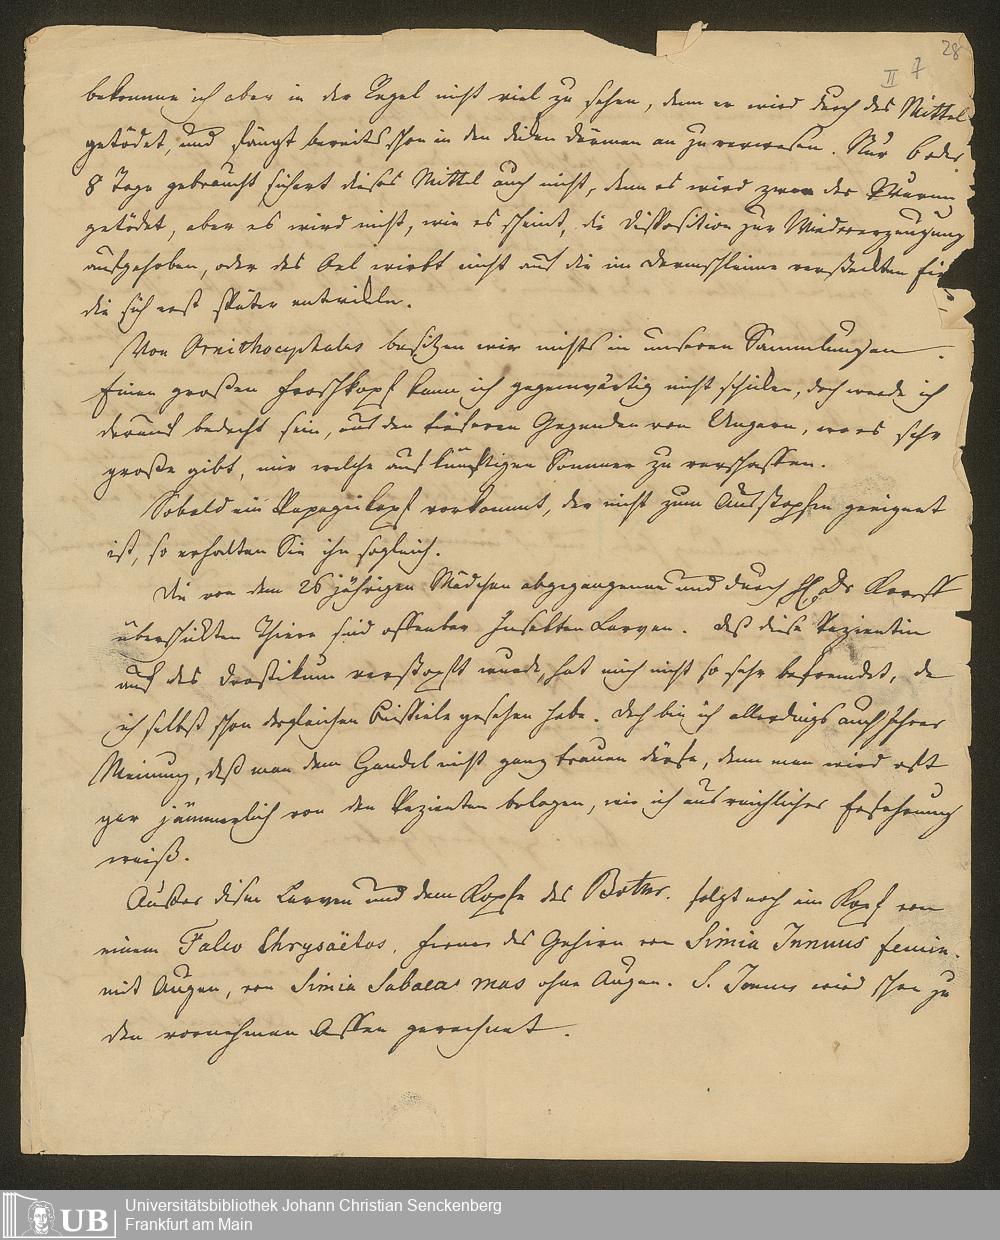 28
II 7
bekomme ich aber in der Regel nicht viel zu sehen, denn er wird durch das Mittel
getödtet, und fängt bereits schon in den dicken Därmen an zu verwesen. Nur 6 oder
8 Tage gebraucht sichert dieses Mittel auch nicht, denn es wird zwar der Wurm
getödtet, aber es wird nicht, wie es scheint, die Disposition zur Wiedererzeugung
aufgehoben, oder das Oel wirkt nicht auf die im Darmschleime versteckten
die sich erst später entwickeln.
Von Ornithocephalus besitzen wir nichts in unseren Sammlungen.
Einen großen Froschkopf kann ich gegenwärtig nicht schicken, doch werde ich
darauf bedacht sein, aus den tieferen Gegenden von Ungarn, wo es sehr
große gibt, mir welche auf künftigen Sommer zu verschaffen.
Sobald ein Papageikopf vorkommt, der nicht zum Ausstopfen geeignet
ist, so erhalten Sie ihn sogleich.
Die von dem 26 jährigen Mädchen abgegangenen und durch H. Dr
überschickten Thiere sind offenbar Insekten Larven. Daß diese Pazientin
auf das Drastikum verstopft wurde, hat mich nicht so sehr befremdet, da
ich selbst schon dergleichen Beispiele gesehen habe. Doch bin ich allerdings auch Ihrer
Meinung, daß man dem Handel nicht ganz trauen dürfe, denn man wird oft
gar jämmerlich von den Pazienten belogen, wie ich aus reichlicher Erfahrung
weiß.
Außer diesen Larven und dem Kopfe des folgt noch ein Kopf von
einem Falco Chrysaëtos, ferner das Gehirn von Simia Innuus femin.
mit Augen, von Simia Sabaea mas ohne Augen. S. Innuus wird schon zu
den vornehmen Affen gerechnet.
UB
Universitätsbibliothek Johann Christian Senckenberg
Frankfurt am Main